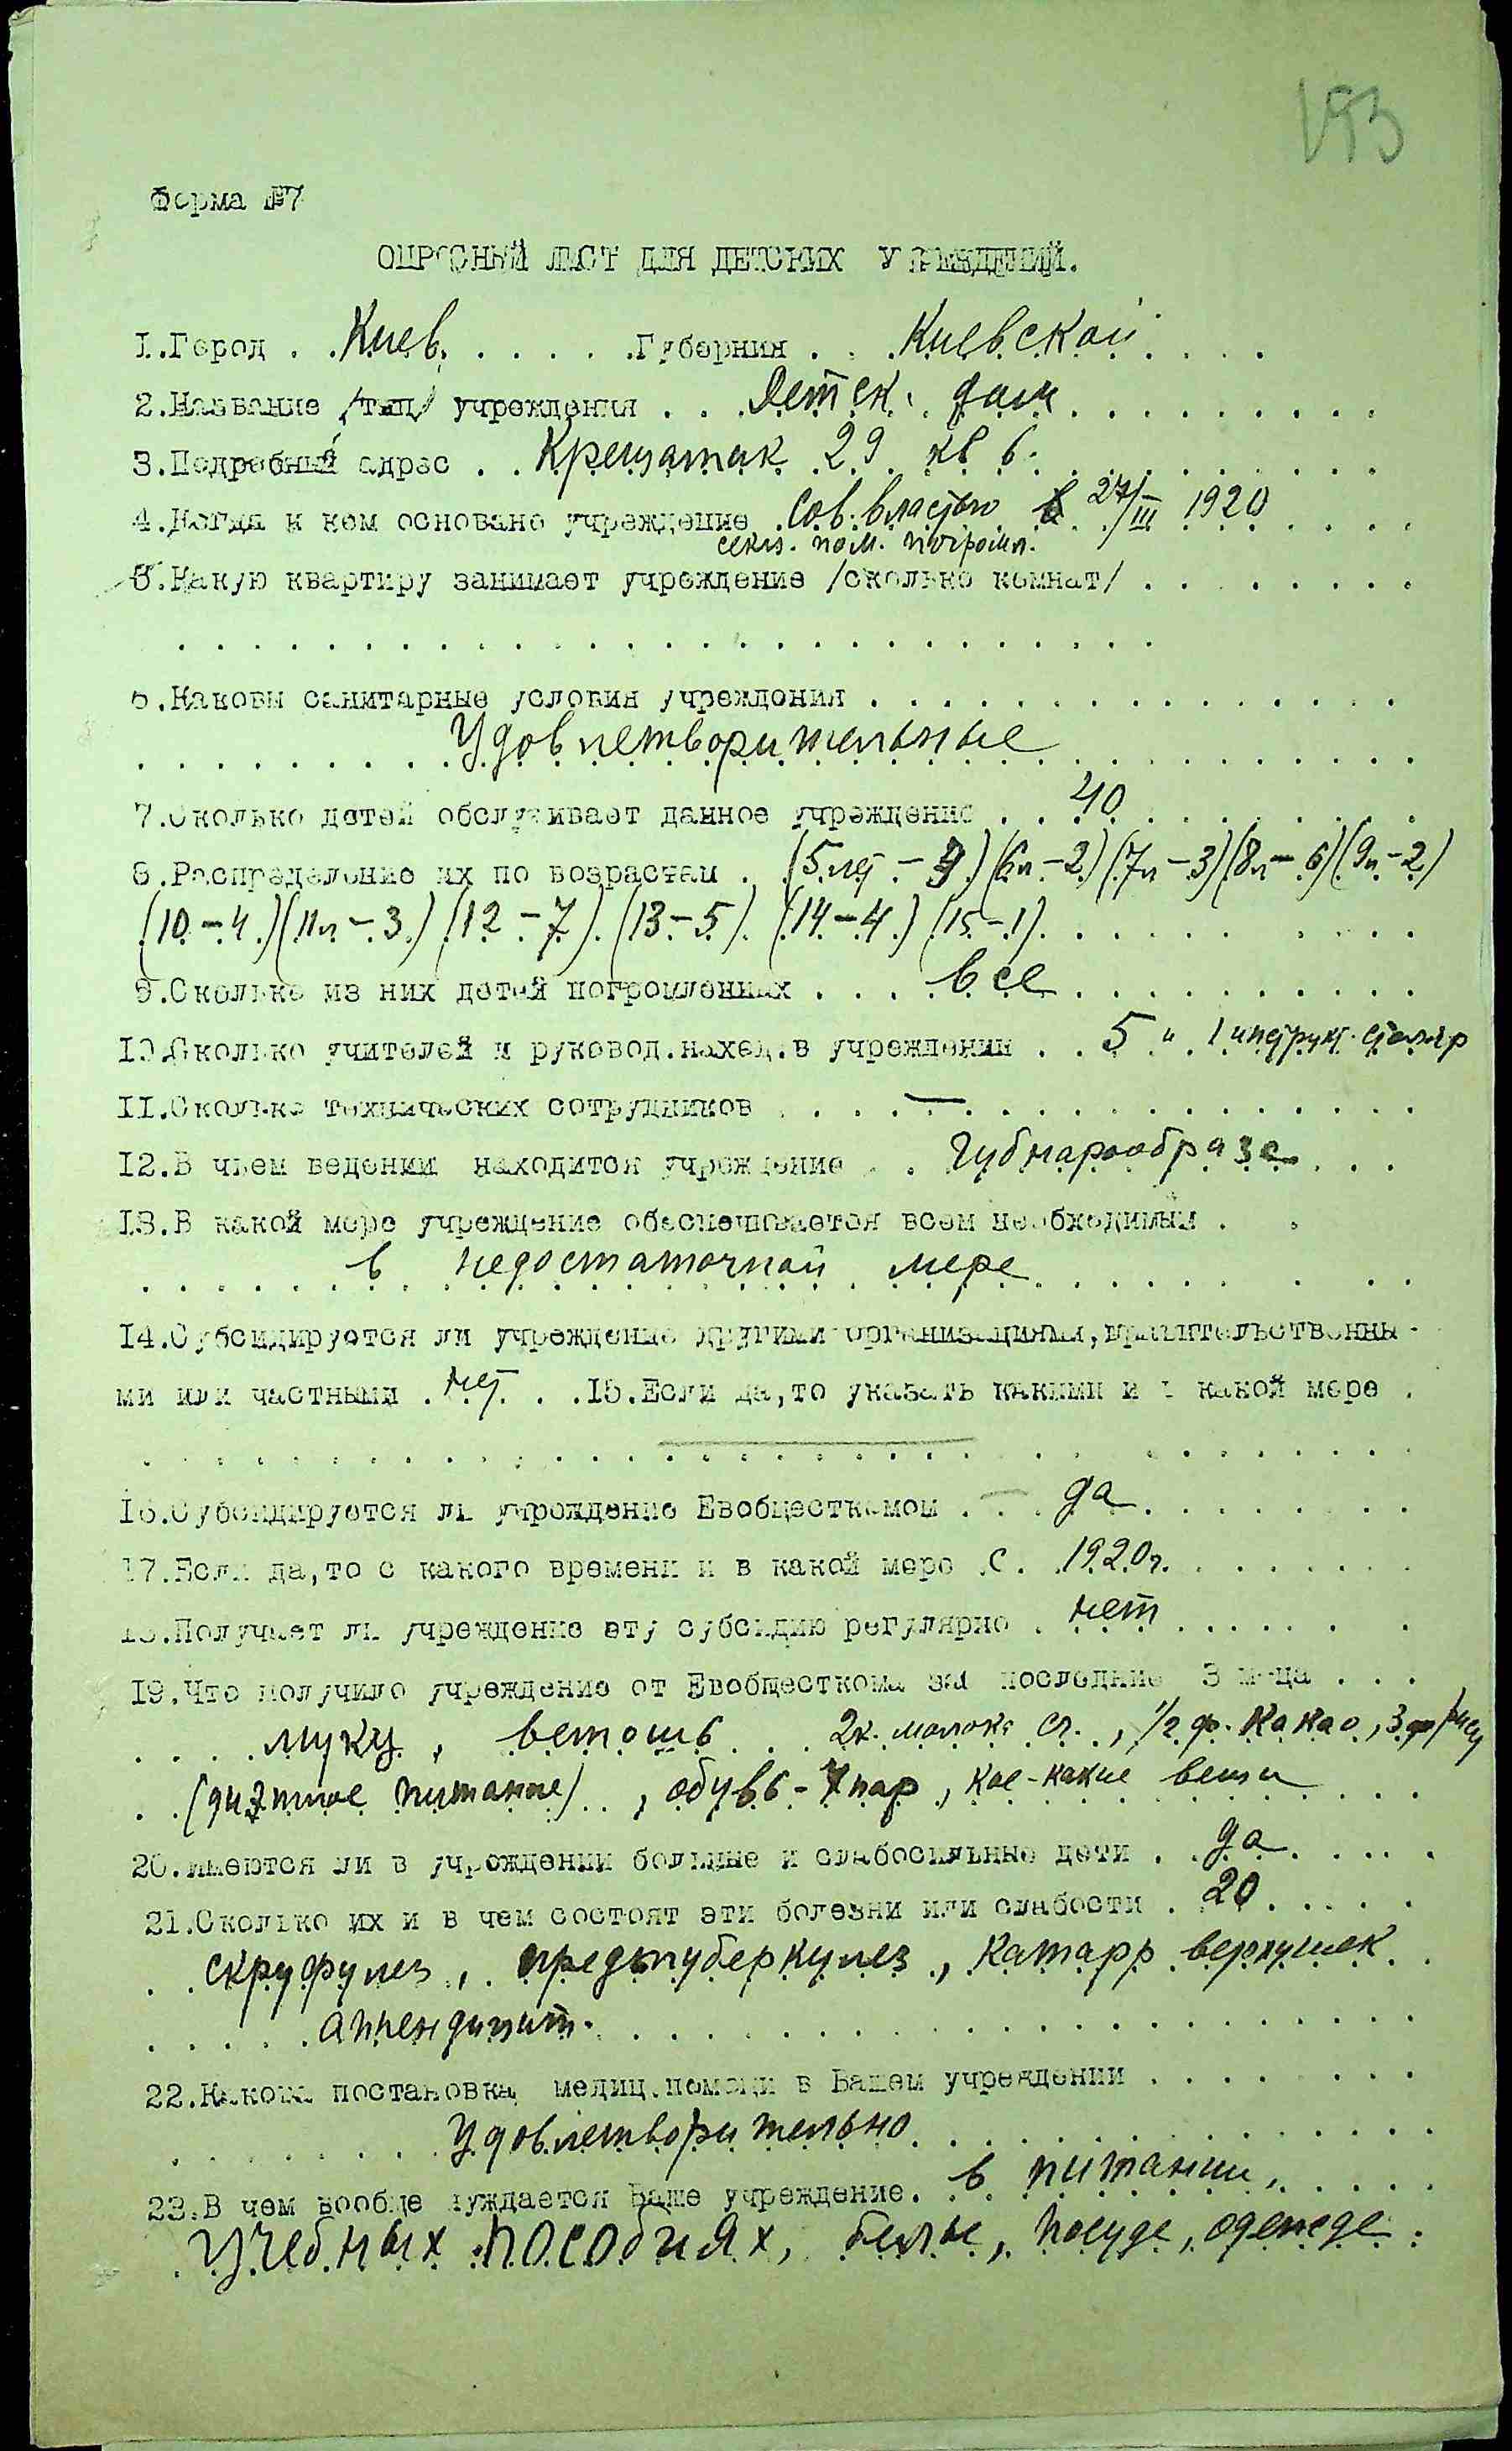 193
Форма №7
ОПРОСНЫЙ ЛИСТ ДЛЯ ДЕТСКИХ УЧРЕЖДЕНИЙ.
1.Город . . Киев. . . . . .Губерния . . .Киевской . . . .
2.Название /тип/ учреждения . . . Детск. дом . . . . . . . . .
3.Подробный адрес . . Крещатик 29 кв 6. . . . . . . . . .
4.Когда и кем основано учреждение .Сов. властью в 27/III 1920 . . . .
секц. пом. погромл.
5.Какую квартиру занимает учреждение /сколько комнат/ . . . . . . . .
6.Каковы санитарные условия учреждения . . . . . . . . . . . . . . .
Удовлетворительные
7.Сколько детей обслуживает данное учреждение . . 40 . . . . . . . .
8.Распределение их по возрастам . (5 лет - 3) (6л - 2) (7л - 3) (8л - 6) (9л - 2)
(10 - 4.) (11л - 3.) (12 - 7) (13 - 5). (14 - 4.) (15 - 1). . . . . . . . . .
9.Сколько из них детей погромленных . . . . все . . . . . . . . . .
10.Сколько учителей и руковод.наход.в учреждении . . 5 и 1 инструк. столяр
11.Сколько технических сотрудников . . . . — . . . . . . . . . . . .
12.В чьем ведении находится учреждение . . Губнаробраза . . .
13.В какой мере учреждение обеспечивается всем необходимым . .
в недостаточной мере
14.Субсидируется ли учреждение другими организациями,правительственны-
ми или частными . нет. . .15.Если да,то указать какими и в какой мере .
—
16.Субсидируется ли учреждение Евобщесткомом . — . да . . . . . . . .
17.Если да,то с какого времени и в какой мере .С. .1920г. . . . . . . .
18.Получает ли учреждение эту субсидию регулярно . нет . . . . . . .
19.Что получило учреждение от Евобщесткома за последние 3 м-ца . . .
муку, ветошь 2к. молока сг., 1/2 ф. какао, 3 ф рису
(диэтное питание) . , обувь - 7 пар, кое-какие вещи
20.Имеются ли в учреждении больные и слабосильные дети . . да . . . . .
21.Сколько их и в чем состоят эти болезни или слабости . 20 . . . . .
скруфулез, предтуберкулез, катарр верхушек
аппендицит.
22.Какова постановка медиц.помощи в Вашем учреждении . . . . . . . .
Удовлетворительно
23.В чем вообще нуждается Ваше учреждение. в питании,
учебных пособиях, белье, посуде, одежде.